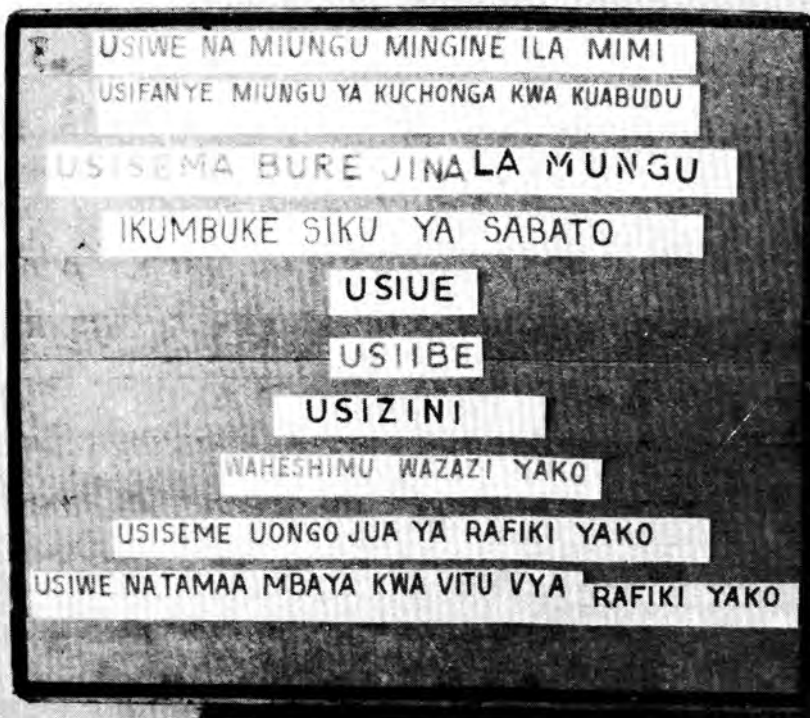 USIWE NA MIUNGU MINGINE ILA MIMI
USIFANYE MIUNGU YA KUCHONGA KWA KUABUDU
USISEMA BURE JINA LA MUNGU
IKUMBUKE SIKU YA SABATO
USIUE
USIIBE
USIZINI
WAHESHIMU WAZAZI YAKO
USISEME UONGO JUA YA RAFIKI YAKO
USIWE NATAMAA MBAYA KWA VITU VYA RAFIKI YAKO